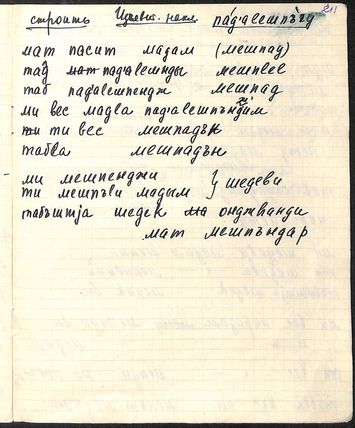 строить Изъявит. накл. па́далешпъгу
мат пасит мадам (мешпад)
таб мат пад'алешнды мешпвес
таб пад'алешпендж мешпад
ми вес мадла пад'алешпъндим
ти ти вес мешпадък
табла мешпадън
ми мешпенджи } шедеви
ти мешпъви мадым
табъштја шедек онджванди
мат мешпъндар